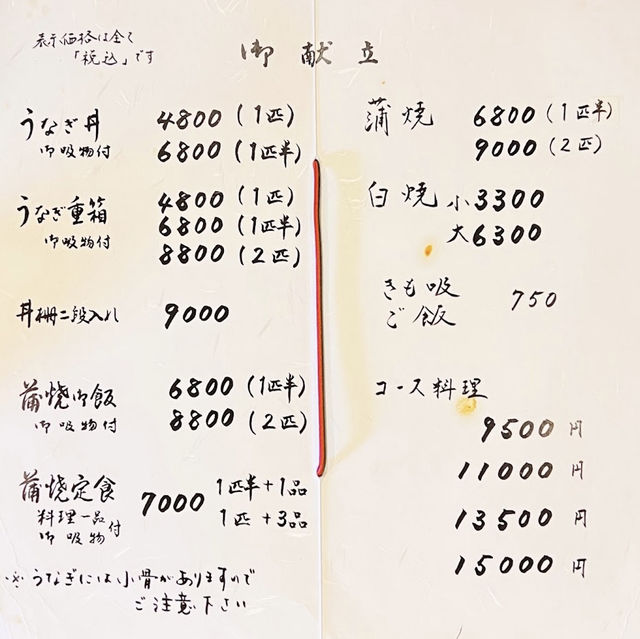 表示価格は全て
「税込」です
御献立
うなぎ丼 4800(1匹)
御吸物付 6800(1匹半)
うなぎ重箱 4800(1匹)
6800(1匹半)
御吸物付 8800(2匹)
丼柵二段入れ 9000
蒲焼御飯 6800(1匹半)
御吸物付 8800(2匹)
蒲焼定食 7000 1匹半+1品
料理一品 1匹+3品
御吸物付
※うなぎには小骨がありますので
ご注意下さい
蒲焼 6800(1匹半)
9000(2匹)
白焼 小3300
大6300
きも吸 750
ご飯
コース料理
9500円
11000円
13500円
15000円